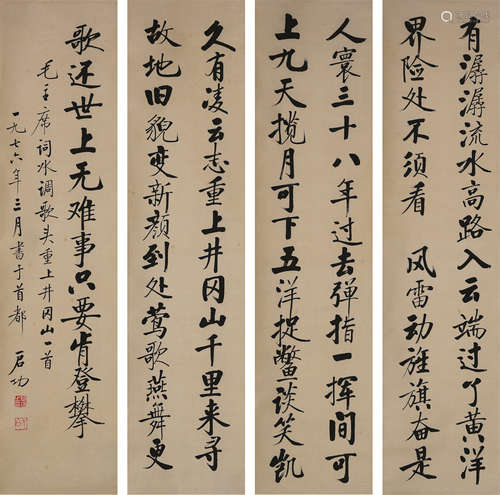 有潺潺流水高路入云端过了黄洋
界险处不须看 风雷动旌旗奋是
人寰三十八年过去弹指一挥间可
上九天揽月可下五洋捉鳖谈笑凯
久有凌云志重上井冈山千里来寻
故地旧貌变新颜到处莺歌燕舞更
歌还世上无难事只要肯登攀
毛主席词水调歌头重上井冈山一首
一九七六年三月書于首都 启功